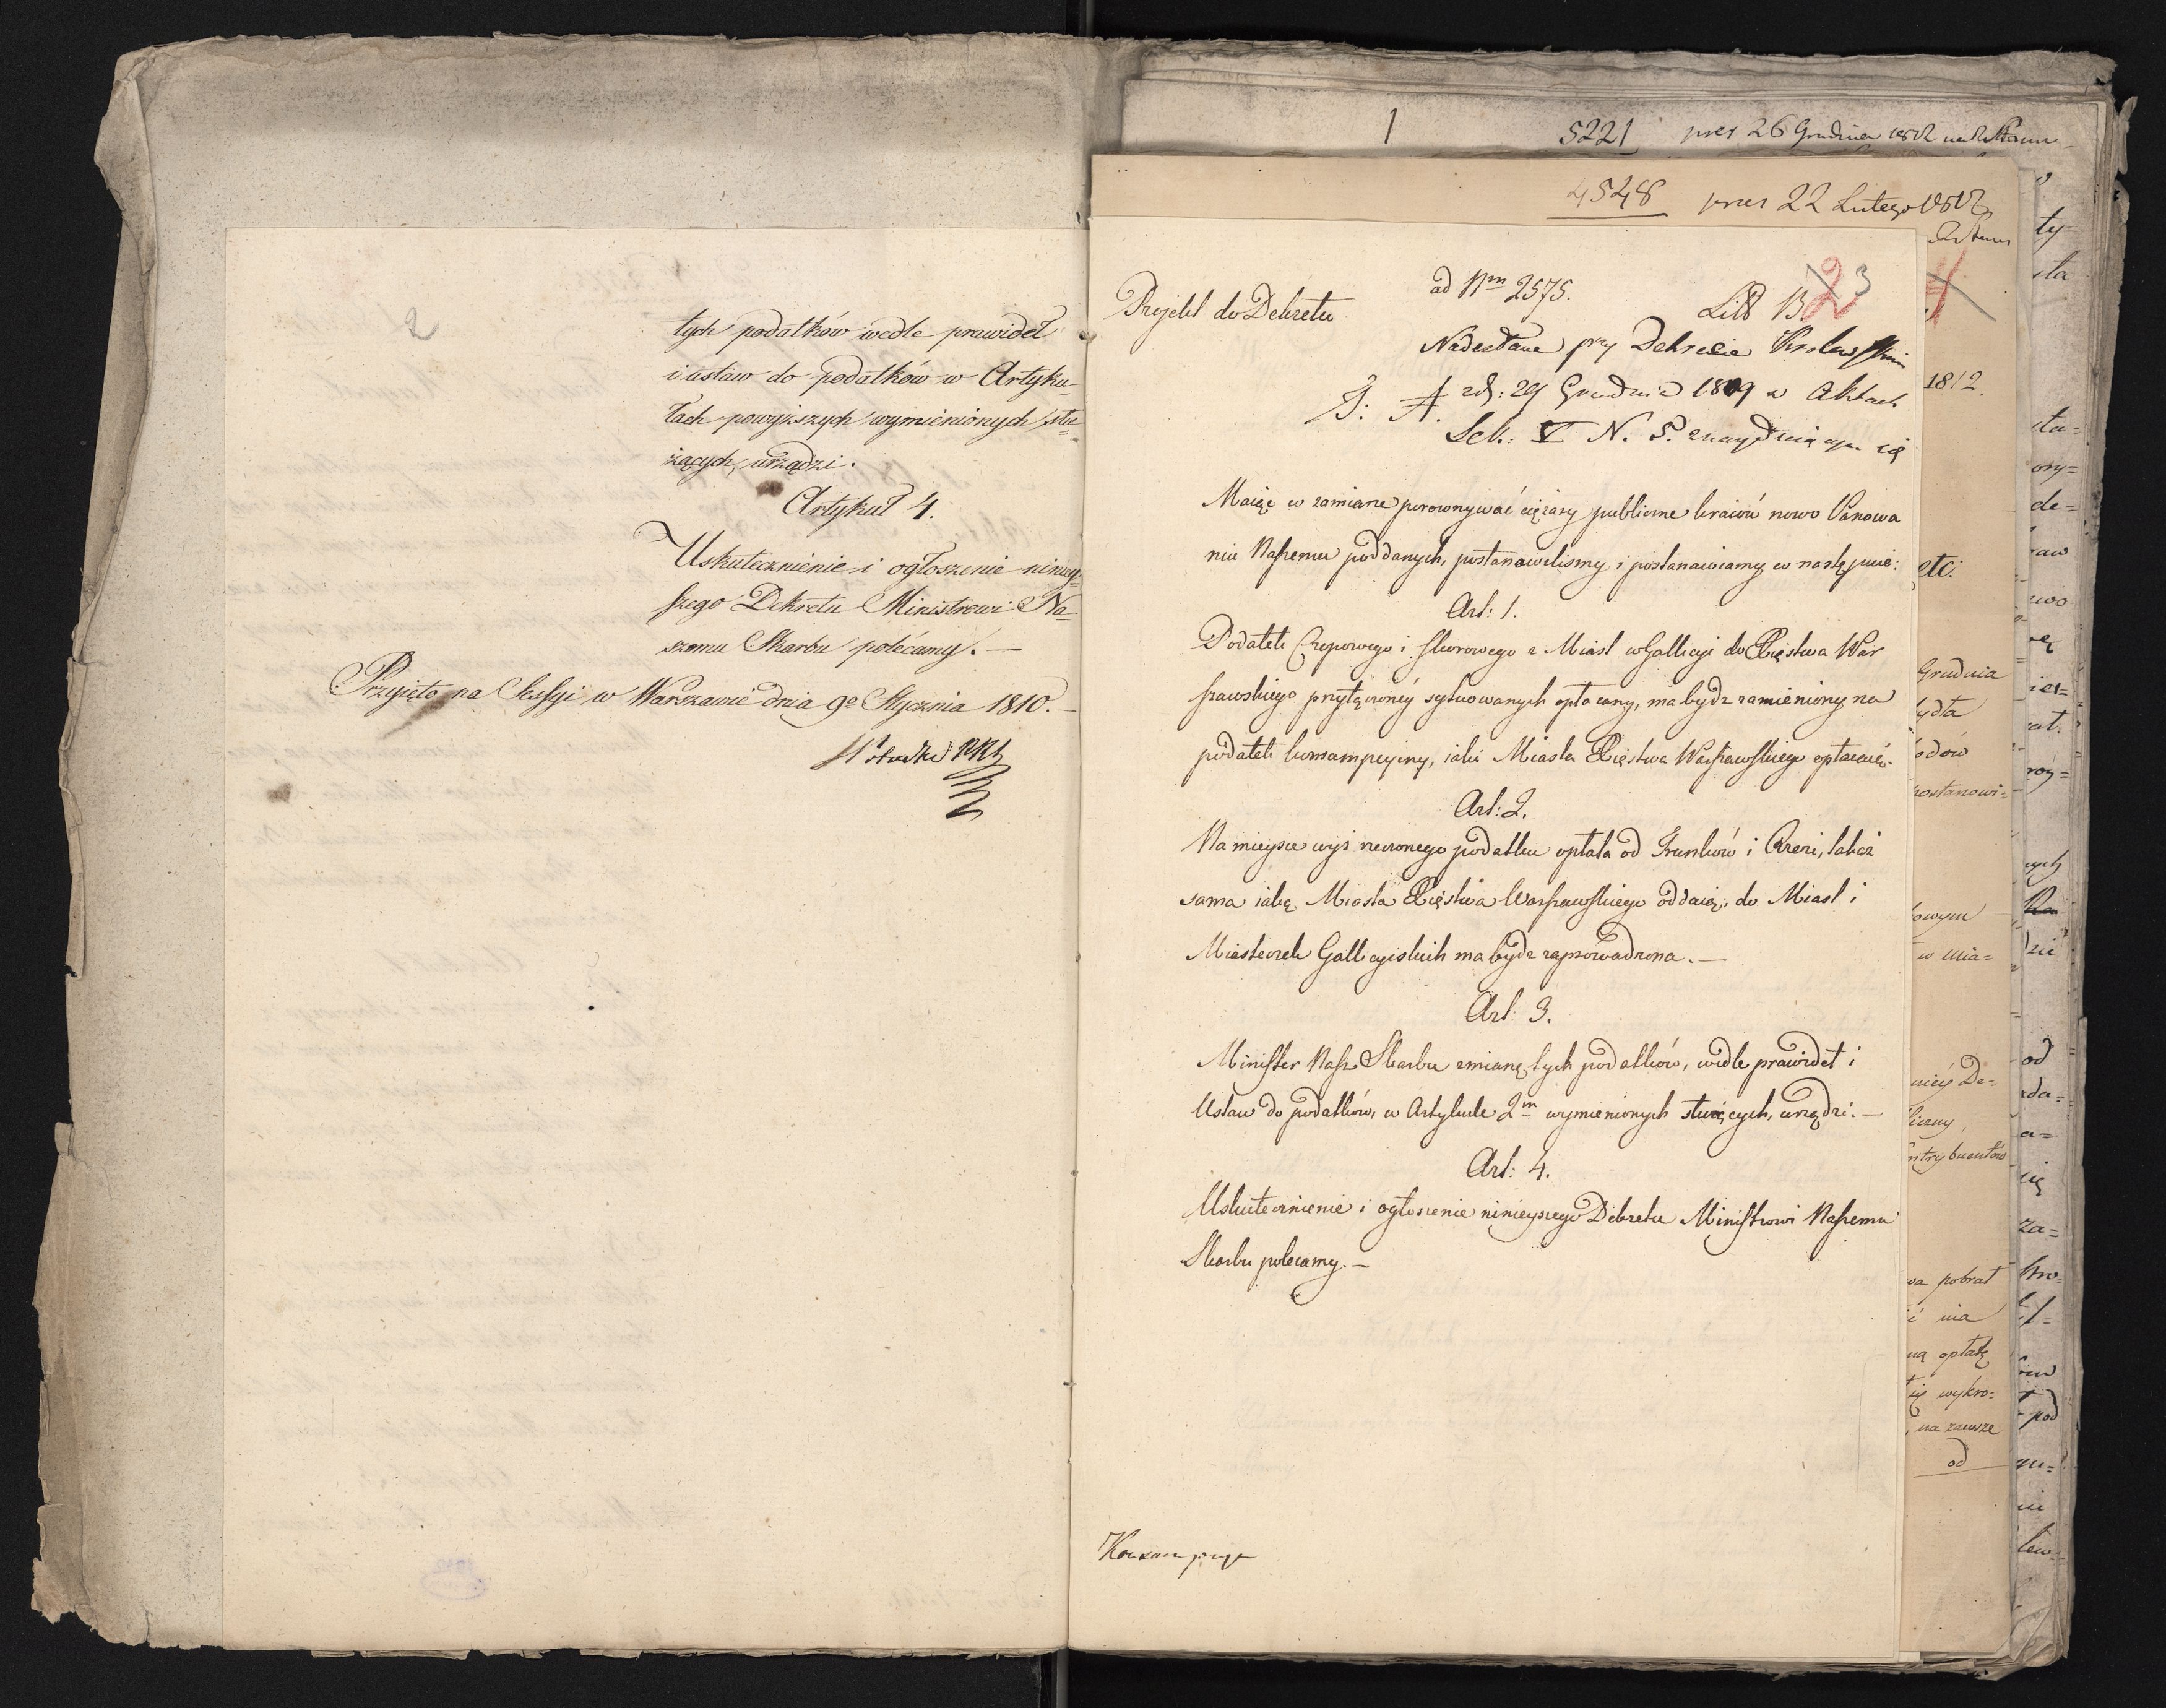 2
tych podatków wedle prawideł
i ustaw do podatków w Artyku-
łach powyższych wymienionych słu=
żących, urządzi.
Artykuł 4.
Uskutecznienie i ogłoszenie niniey-
szego Dekretu Ministrowi Na-
szemu Skarbu polécamy. —
Przyięto na Sessyi w Warszawie dnia 9º Stycznia 1810. —
1
5221 prez 26 Grudnia 1812
4548 prez 22 Lutego 1812
ad Nrm 2575.
Projekt do Dekretu
Litt B. 2 3
Nadesłane przy Dekrecie Krolewskim
J: A. zd: 29 Grudnia 1809 w Aktach
Sek: V N. 5. znayduiącym się
Maiąc w zamiarze porownywać ciężary publiczne kraiów nowo Panowa
niu Naszemu poddanych, postanowilismy i postanawiamy co następuie:
Art: 1.
Podatek Czopowego i Skorowego z Miast w Gallicyi do Xięstwa War
szawskiego przyłączonéy sytuowanych opłacany, ma bydź zamieniony na
podatek konsumpcyiny, iaki Miasta Xięstwa Warszawskiego opłacaią.
Art: 2.
Na mieysce wyż rzeczonego podatku opłata od Trunków i Rzezi, takaż
sama iaką Miasta Xięstwa Warszawskiego oddaią, do Miast i
Miasteczek Gallicyiskich ma bydź zaprowadzona. —
Art: 3.
Minister Nasz Skarbu zmianę tych podatków, wedle prawideł i
Ustaw do podatków, w Artykule 2m wymienionych służących, urządzi. —
Art: 4.
Uskutecznienie i ogłoszenie ninieyszego Dekretu Ministrowi Naszemu
Skarbu polecamy. —
Konsumpcya
1812.
etc:
Grudnia
bydła
postanowi=
w mia=
pobrał
opłatę
wykro=
na zawsze
od